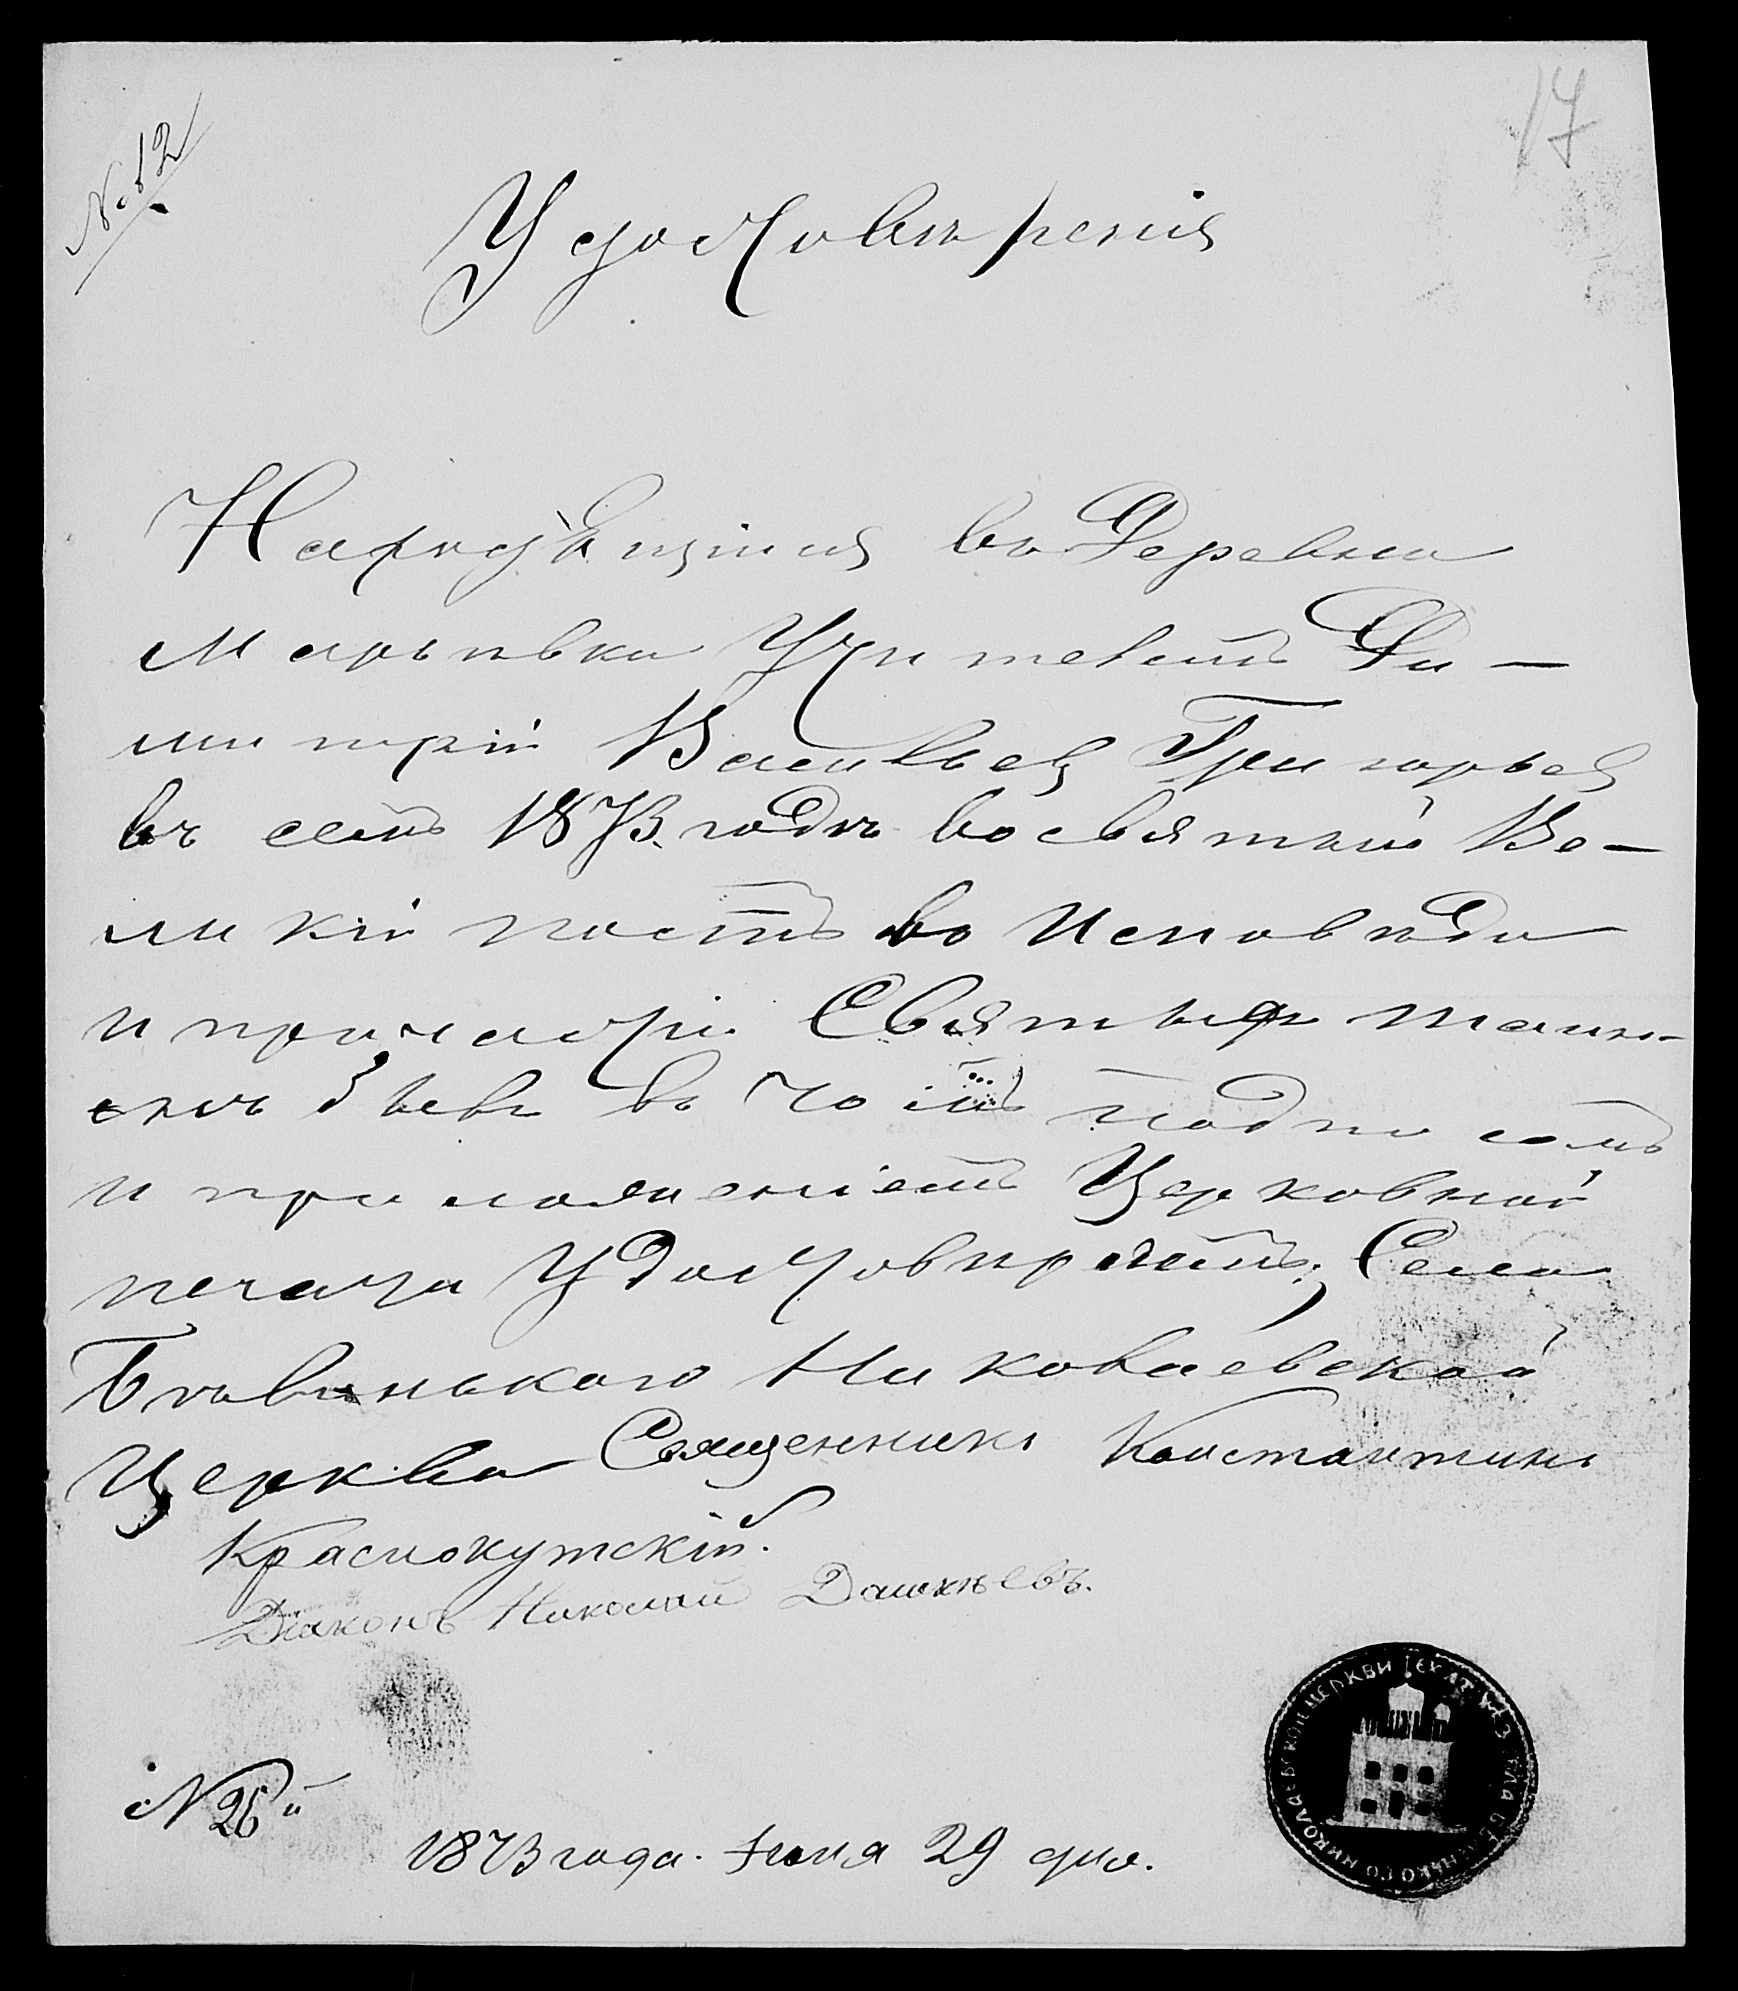 17
№ 12
Удостовѣрения
Народѣщиися въ Деревни
Марьивки Учителемъ Ди-
митрій Васильев Григорьев
въ семъ 1873 годѣ во святый Ве-
ликій постъ во Исповѣди
и причастіи Святыхъ таин-
въ чомъ подписомъ
и приложениемъ Церковной
печати Удостовѣряемъ; Села
Бѣлинького Николаевской
Церкви Священникъ Константинъ
Краснокутскій.
Діаконъ Николай Дашкѣевъ.
№ 26й
1873 года. Июня 29 дня.
НИКОЛАЕВСКОЙ ЦЕРКВИ ЕКАТ. СЕЛА БЕЛЕНЬКОГО